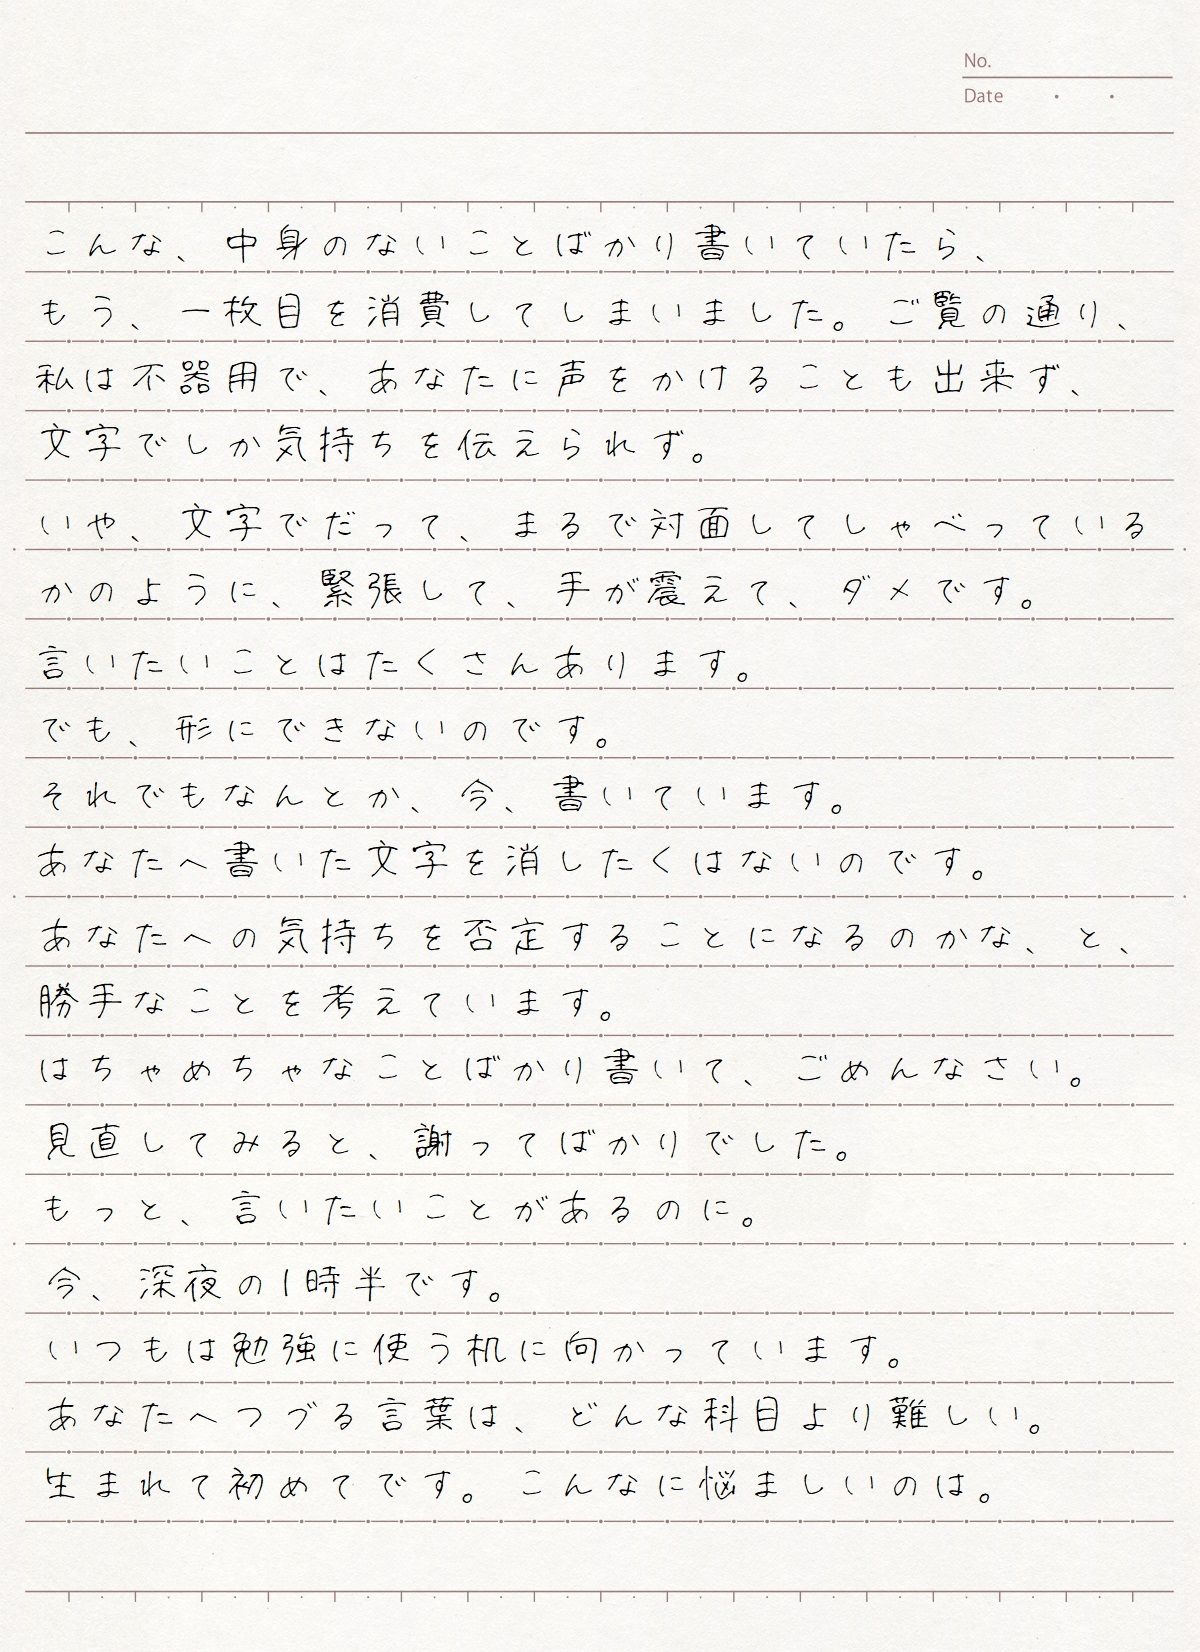 No.
Date ・ ・
こんな、中身のないことばかり書いていたら、
もう、一枚目を消費してしまいました。ご覧の通り、
私は不器用で、あなたに声をかけることも出来ず、
文字でしか気持ちを伝えられず。
いや、文字でだって、まるで対面してしゃべっている
かのように、緊張して、手が震えて、ダメです。
言いたいことはたくさんあります。
でも、形にできないのです。
それでもなんとか、今、書いています。
あなたへ書いた文字を消したくはないのです。
あなたへの気持ちを否定することになるのかな、と、
勝手なことを考えています。
はちゃめちゃなことばかり書いて、ごめんなさい。
見直してみると、謝ってばかりでした。
もっと、言いたいことがあるのに。
今、深夜の1時半です。
いつもは勉強に使う机に向かっています。
あなたへつづる言葉は、どんな科目より難しい。
生まれて初めてです。こんなに悩ましいのは。